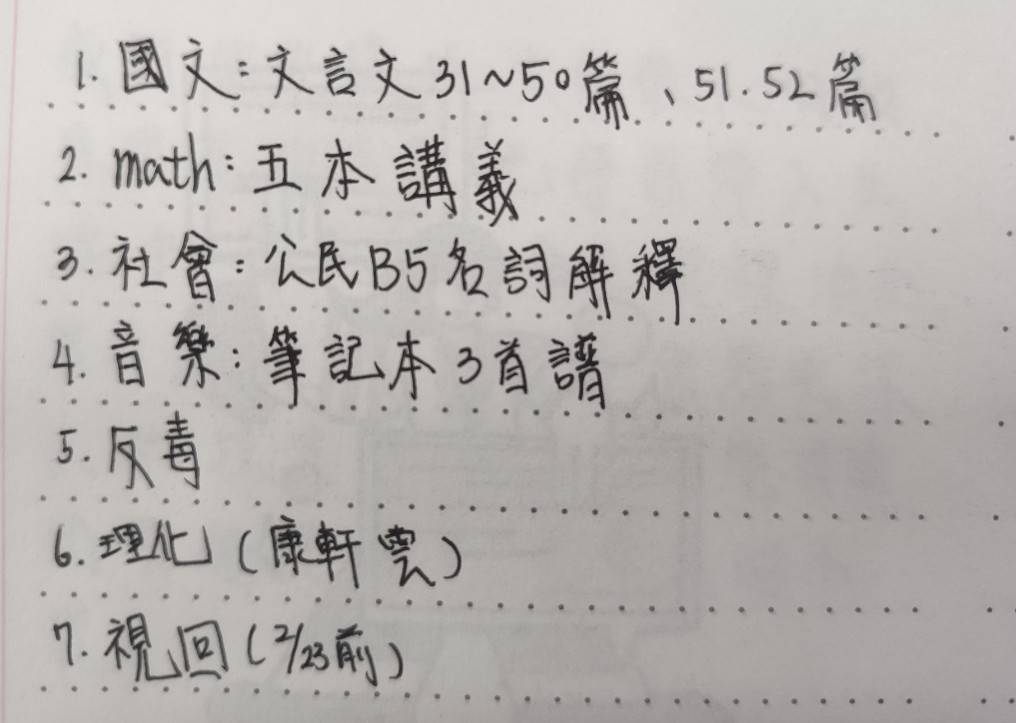 1. 國文：文言文31~50篇、51.52篇
2. math：五本講義
3. 社會：公民B5名詞解釋
4. 音樂：筆記本3首譜
5. 反毒
6. 理化（康軒雲）
7. 視回（2/23前）